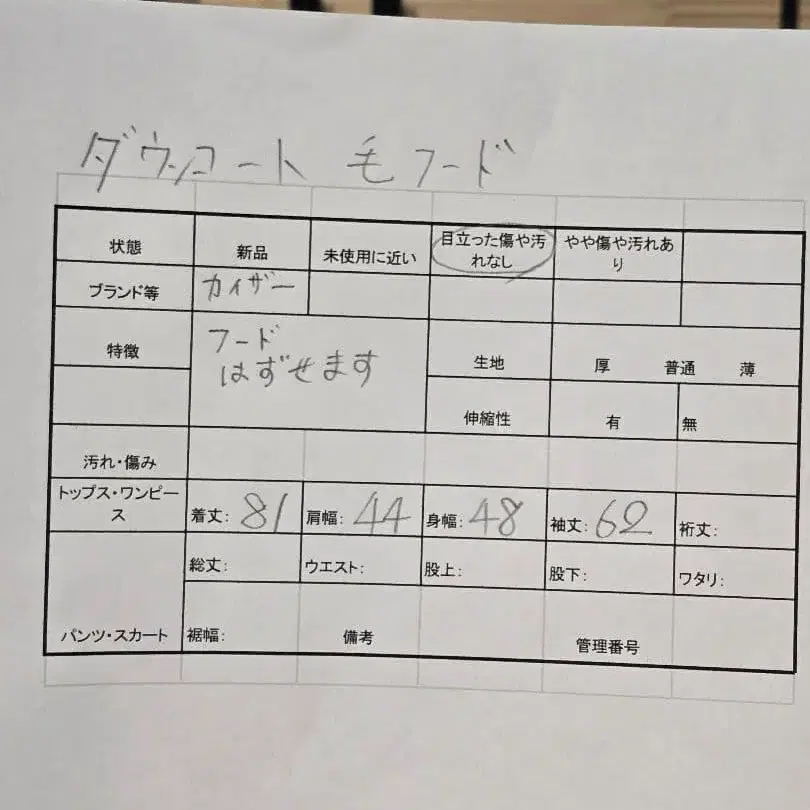 ダウンコート 毛フード
状態 新品 未使用に近い 目立った傷や汚れなし やや傷や汚れあり
ブランド等 カイザー
特徴 フード
はずせます
生地 厚 普通 薄
伸縮性 有 無
汚れ・傷み
トップス・ワンピース 着丈: 81 肩幅: 44 身幅: 48 袖丈: 62 裄丈:
総丈: ウエスト: 股上: 股下: ワタリ:
パンツ・スカート 裾幅: 備考 管理番号